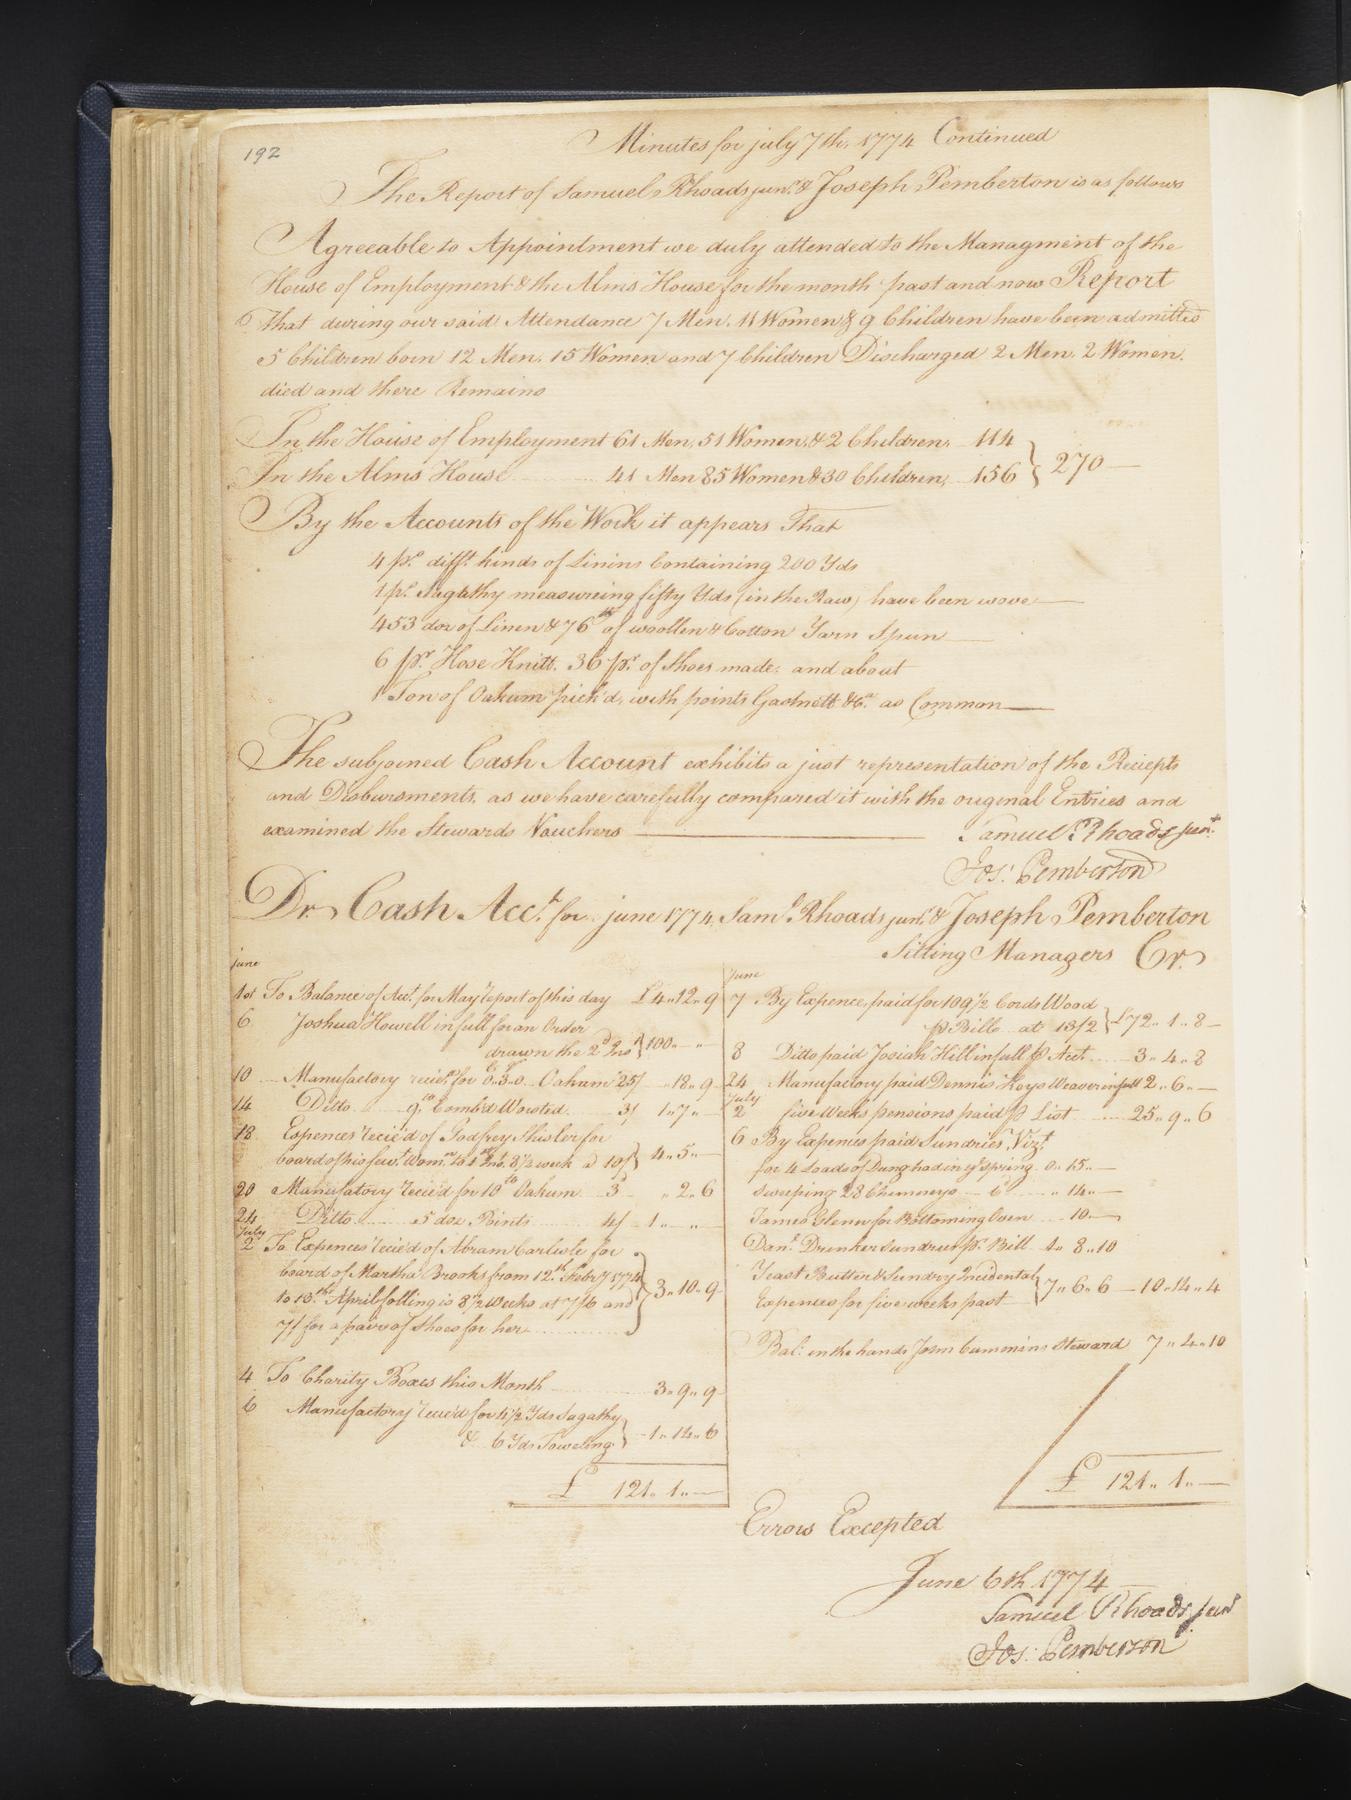 192
Minutes for july 7th. 1774 Continued
The Report of Samuel Rhoads junr. & Joseph Pemberton is as follows
Agreeable to Appointment we duly attended to the Managment of the
House of Employment & the Alms House for the month past and now Report
That during our said Attendance 7 Men. 11 Women & 9 Children have been admitted
5 Children born 12 Men. 15 Women and 7 Children Discharged 2 Men. 2 Women.
died and there Remains
In the House of Employment 61 Men, 51 Women, & 2 Children, 114
In the Alms House 41 Men 85 Women & 30 Children, 156 } 270
By the Accounts of the Work it appears That
4 ps. difft. kinds of Linins Containing 200 Yds
1 ps. Sagathy measureing fifty Yds (in the Raw) have been wove
453 doz of Linen & 76 lb of woollen & Cotton Yarn Spun
6 pr. Hose Knitt. 36 pr. of Shoes made. and about
1 Ton of Oakum pick'd, with points Gasknett &c. as Common
The subjoined Cash Account exhibits a just representation of the Reciepts
and Disbursments, as we have carefully compared it with the original Entries and
examined the Stewards Vouchers
Samuel Rhoads junr.
Jos. Pemberton
Dr. Cash Acct. for june 1774 Saml. Rhoads junr. & Joseph Pemberton
Sitting Managers Cr.
june
1st To Balance of Acct. for May report of this day £4..12..9
6 Joshua Howell in full for an Order
drawn the 2d Inst } 100..—..
10 Manufactory reciev'd for 0..3..0 Oakum 25/ ..18..9
14 Ditto 9 lb Comb'd Worsted 3/ 1..7..—
18 Expences recie'd of Godfrey Shisler for
board of his servt. Wom. to 1st Ins. 8 1/2 week a 10/ } 4..5..—
20 Manufatory recie'd for 10 lb Oakum 3d ..2..6
24 Ditto 5 doz Points 4/ 1..—..
July
2 To Expences recie'd of Abram Carlisle for
board of Martha Brooks from 12th. Febry 1774
to 13th April folling is 8 1/2 Weeks at 7/6 and
7/ for a pair of Shoes for her } 3..10..9
4 To Charity Boxes this Month 3..9..9
6 Manufactory recie'd for 4 1/2 Yds Sagathy
& 6 Yds Toweling } 1..14..6
£ 121..1..—
June
7 By Expence, paid for 109 1/2 Cords Wood
p Bill at 13/2 } £72..1..8
8 Ditto paid Josiah Hill in full p Acct. 3..4..8
24 Manufactory paid Dennis Keys Weaver in full 2..6..—
July
2 five Weeks pensions paid p List 25..9..6
6 By Expences paid Sundries, Vizt.
for 4 Loads of Dung had in ye spring 0..15..—
Sweeping 28 Chimneys 6d ..14..—
James Glenn for Bottoming Oven 10..—
Danl. Drinker sundries p. Bill 1..8..10
Yeast Butter & Sundry Incidental
Expences for five weeks past } 7..6..6 10..14..4
Bal. in the hands Josn Cummins Steward 7..4..10
£ 121..1..—
Errors Excepted
June 6th 1774
Samuel Rhoads junr
Jos. Pemberton